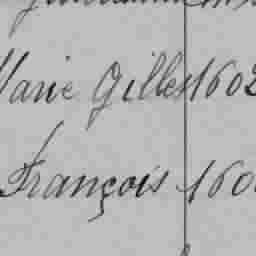 Marie Gilles 1602
François 160